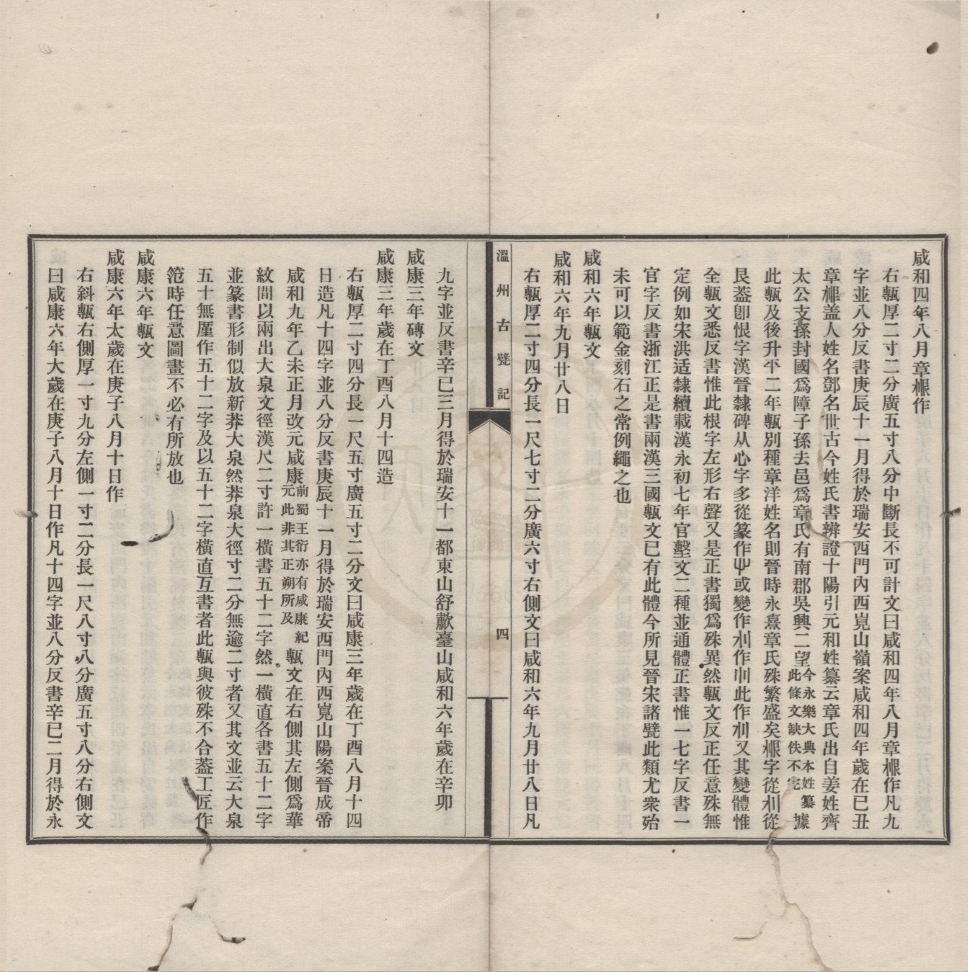 咸和四年八月章㮂作
右甎厚二寸二分廣五寸八分中斷長不可計文曰咸和四年八月章㮂作凡九
字並八分反書庚辰十一月得於瑞安西門內西峴山嶺案咸和四年歲在已丑
章㮂葢人姓名鄧名世古今姓氏書辨證十陽引元和姓纂云章氏出自姜姓齊
太公支孫封國爲鄣子孫去邑爲章氏有南郡吳興二望今永樂大典本姓纂此條文缺佚不完據
此甎及後升平二年甎別種章洋姓名則晉時永熹章氏殊繁盛矣㮂字從
艮葢卽恨字漢晉隸碑从心字多從篆作
全甎文悉反書惟此根字左形右聲又是正書獨爲殊異然甎文反正任意殊無
定例如宋洪适隸續載漢永初七年官墼文二種並通體正書惟一七字反書一
官字反書浙江正是書兩漢三國甎文已有此體今所見晉宋諸甓此類尤衆殆
未可以範金刻石之常例繩之也
咸和六年甎文
咸和六年九月廿八日
右甎厚二寸四分長一尺七寸二分廣六寸右側文曰咸和六年九月廿八日凡
溫州古甓記
四
九字並反書辛巳三月得於瑞安十一都東山舒歗臺山咸和六年歲在辛卯
咸康三年磚文
咸康三年歲在丁酉八月十四造
右甎厚二寸四分長一尺五寸廣五寸二分文曰咸康三年歲在丁酉八月十四
日造凡十四字並八分反書庚辰十一月得於瑞安西門內西峴山陽案晉成帝
咸和九年乙未正月改元咸康前蜀王衍亦有咸康紀元此非其正朔所及甎文在右側其左側爲華
紋間以兩出大泉文徑漢尺二寸許一橫書五十二字然一橫直各書五十二字
並篆書形制似放新莽大泉然莽泉大徑寸二分無逾二寸者又其文並云大泉
五十無厪作五十二字及以五十二字橫直互書者此甎與彼殊不合葢工匠作
笵時任意圖畫不必有所放也
咸康六年甎文
咸康六年太歲在庚子八月十日作
右斜甎右側厚一寸九分左側一寸二分長一尺八寸八分廣五寸八分右側文
曰咸康六年大歲在庚子八月十日作凡十四字並八分反書辛巳二月得於永